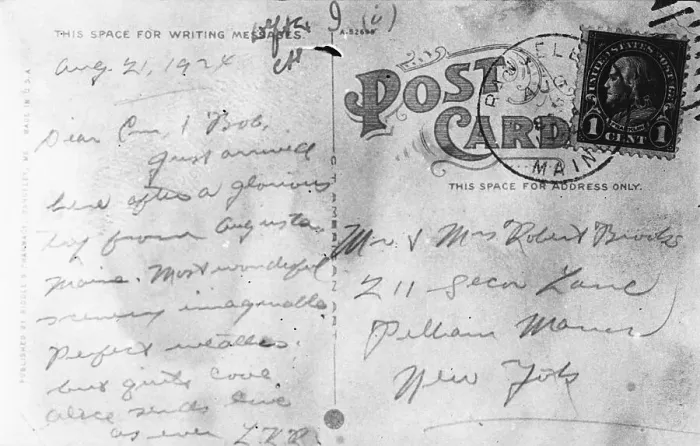 THIS SPACE FOR WRITING MESSAGES.
A-92698
Aug. 21, 1924
Dear Em, & Bob,
Just arrived
here after a glorious
trip from Augusta,
Maine. Most wonderful
scenery imaginable
Perfect weather,
but quite cool.
Alice sends love
as ever
POST
CARD
THIS SPACE FOR ADDRESS ONLY.
MAINE
UNITED STATES POSTAGE
1 CENT 1
Mr & Mrs Robert Brooks
211 Secor Lane
Pelham Manor
New York
PUBLISHED BY RIDDLE'S PHARMACY, RANGELEY, ME. MADE IN U.S.A.